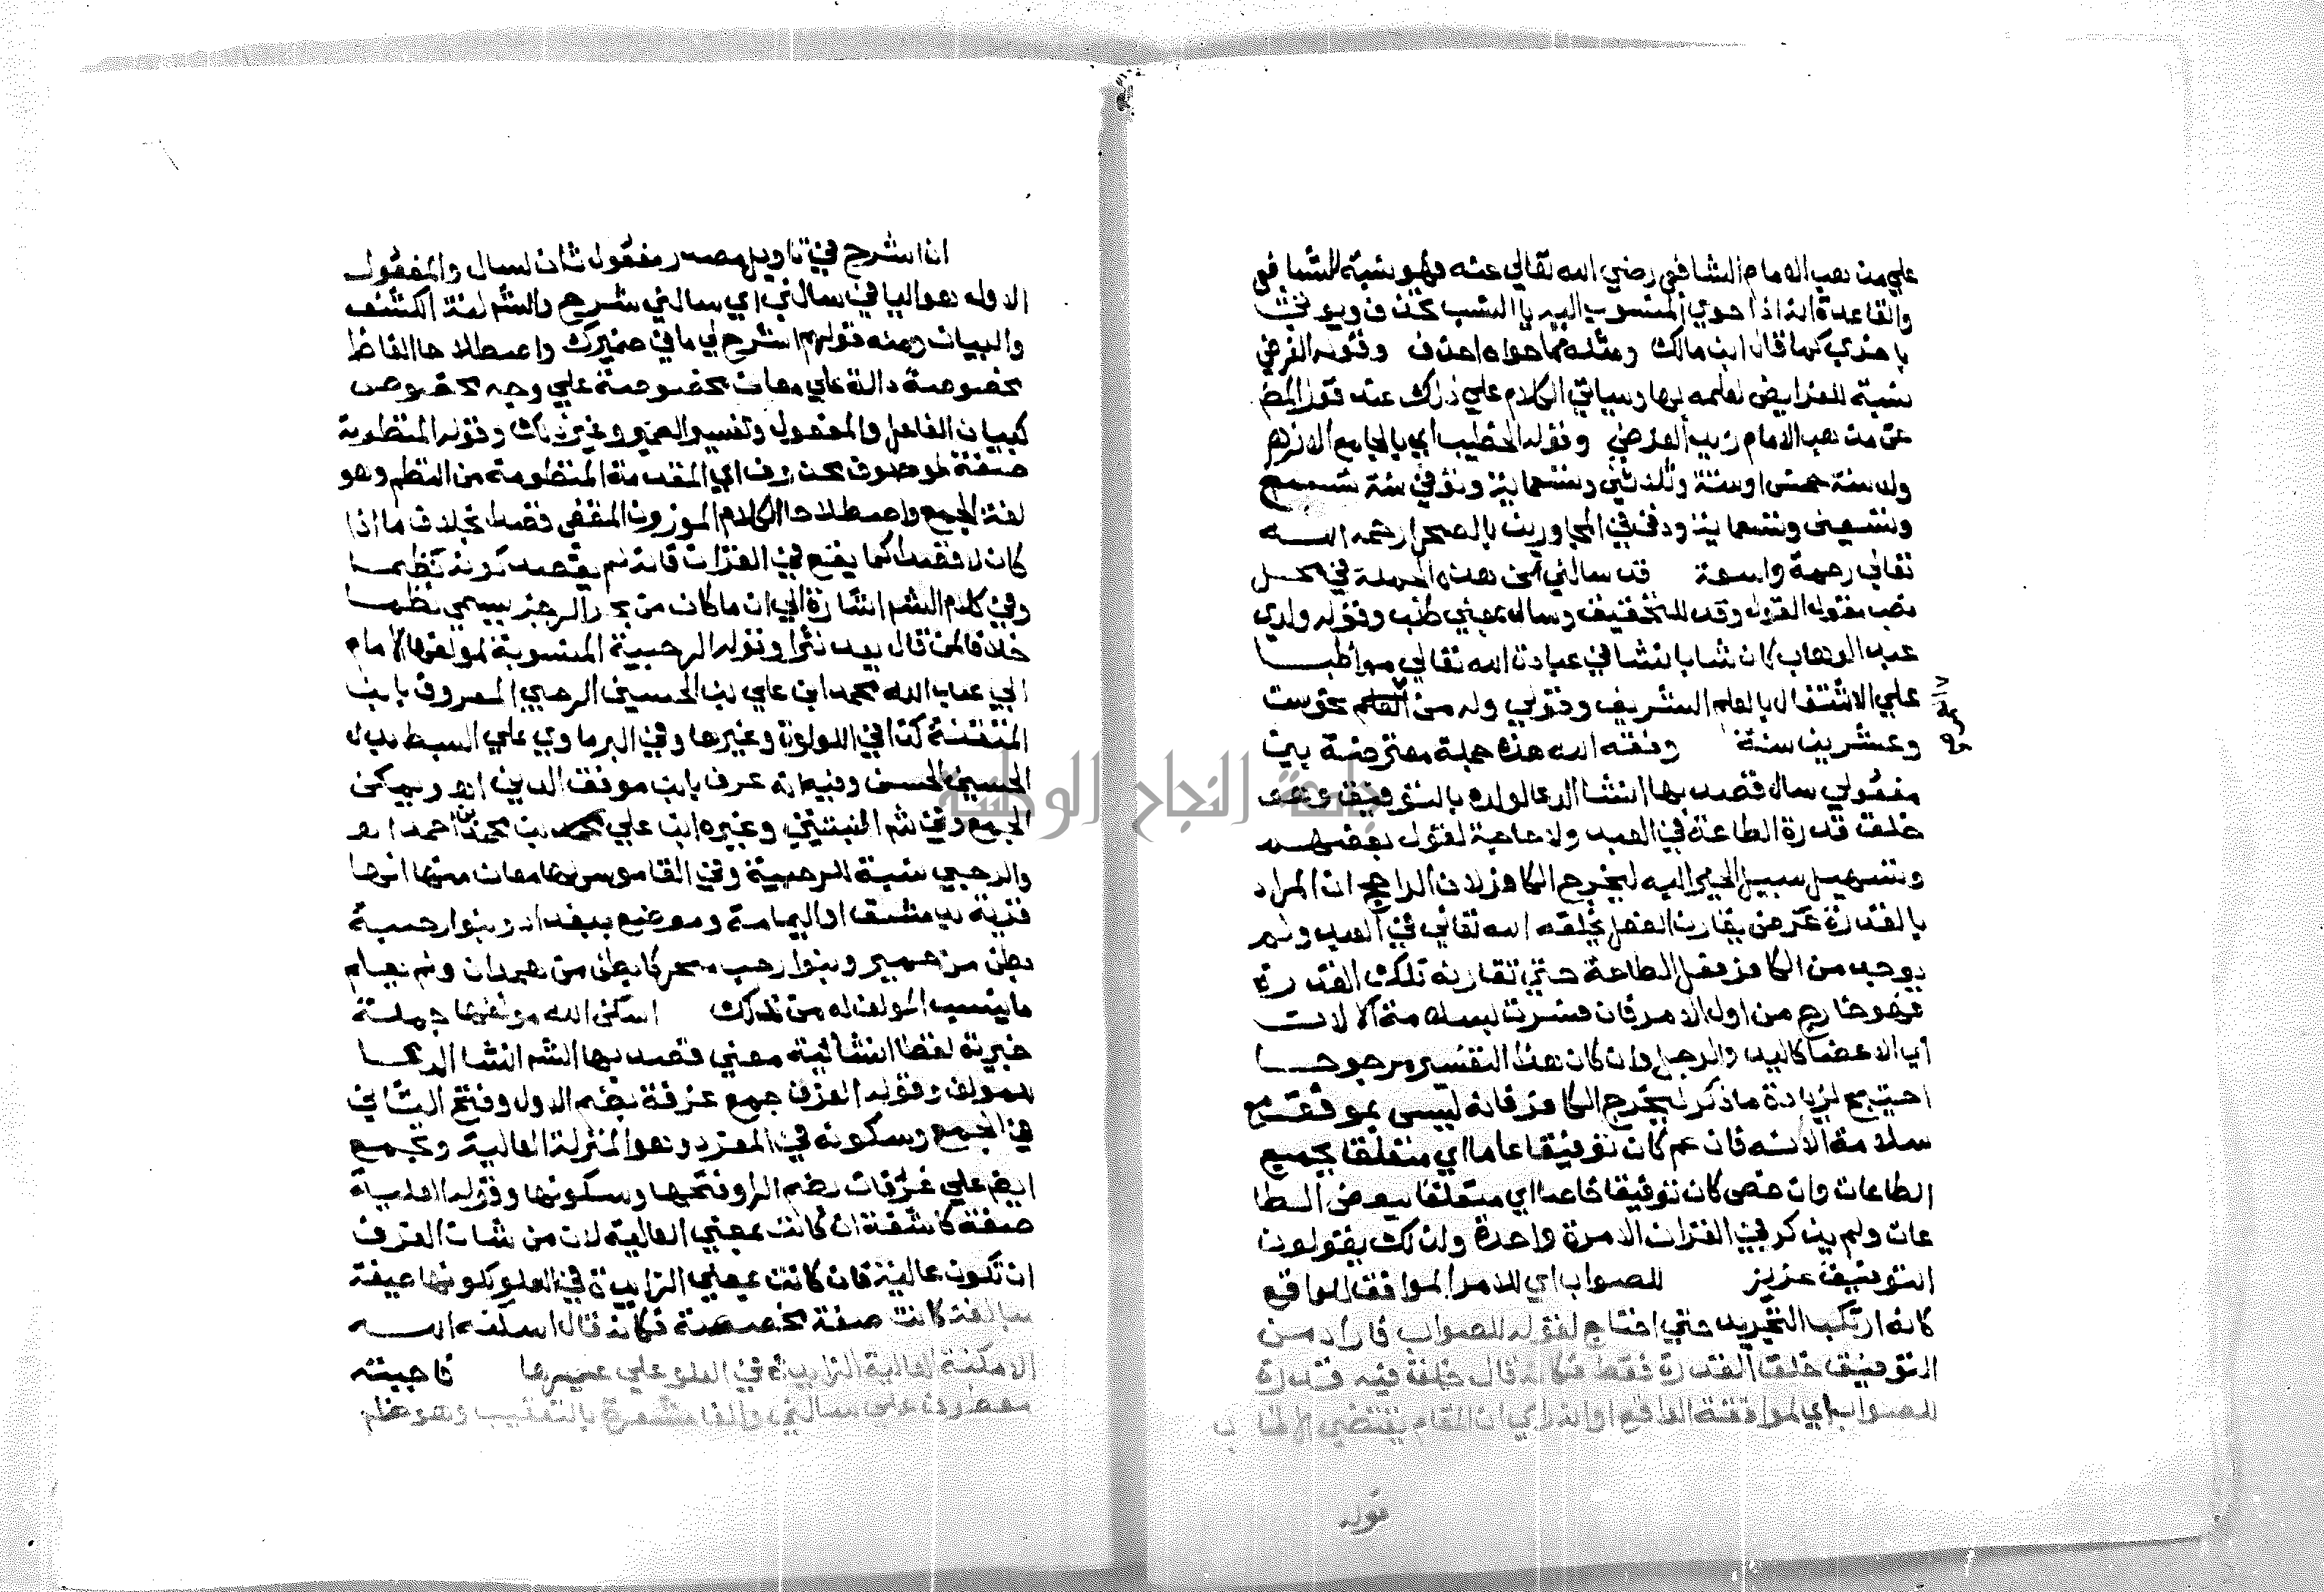 علي مذهب الامام الشافعي رضي الله تعالي عنه فهو نسبة للشافعي
والقاعدة انه اذا حوي المنسوب اليه ياالنسب تحذف ويوتي
يا خري كما قال ابن مالك ومثله مما حواه احذف وقوله الفرضي
نسبة للفرايض لعلمه بها وسياتي الكلام علي ذلك عند قول المص
عن مذهب الامام زيد الفرضي وقوله الخطيب اي بالجامع الازهر
ولد سنة خمس اوستة وثلاثين وتسعماية وتوفي سنة تسع
وتسعين وتسعماية ودفن في المجاورين بالصحرا رحمه الله
تعالي رحمة واسعة قد سالني الخ هذه الجملة في محل
نصب مقول القول وقد للتحقيق وسال بمعني طلب وقوله ولدي
عبد الوهاب كان شابا نشا في عبادة الله تعالي مواظبا
علي الاشتغال بالعلم الشريف وتوفي وله من العلم نحوست
وعشرين سنة وفقه الله هذه جملة معترضة بين
مفعولي سال قصد بها انشا الدعا لولده بالتوفيق وهو
خلق قدرة الطاعة في العبد ولا حاجة لقول بعضهم
وتسهيل سبيل الخير اليه ليخرج الكافر لان الراجح ان المراد
بالقدرة عرض يقارن الفعل يخلقه الله تعالي في العبد ولم
يوجد من الكافر فعل الطاعة حتي تقارنه تلك القدرة
فهو خارج من اول الامر فان فسرت بسلامة الالات
اي الاعضا كاليد والرجل وان كان هذا التفسير مرجوحا
احتيج لزيادة ماذكر ليخرج الكافر فانه ليس بموفق مع
سلامة الاته فان عم كان توفيقا عاما اي متعلقا بجميع
الطاعات وان خص كان توفيقا خاصا اي متعلقا ببعض الطا
عات ولم يذكر في القران الا مرة واحدة ولذلك يقولون
التوفيق عزيز للصواب اي للامر الموافق للواقع
كانه ارتكب التجريد حتي احتاج لقوله للصواب فاراد من
التوفيق خلق القدرة فقط فكانه قال خلق فيه قدرة
للصواب اي لموافقة الواقع اوانه راي ان المقام يقتضي الاطنا ب
قوله
ان اشرح في تاويل مصدر مفعول ثان لسال والمفعول
الاول هو اليا في سالني اي سالني شرح والشرح لغة الكشف
والبيان ومنه قولهم اشرح لي ما في ضميرك واصطلاحا الفاظ
مخصوصة دالة علي معان مخصوصة علي وجه مخصوص
كبيان الفاعل والمفعول وتفسير الضمير وغير ذلك وقوله المنظومة
صفة لموصوف محذوف اي المقدمة المنظومة من النظم وهو
لغة الجمع واصطلاحا الكلام الموزون المقفي قصدا بخلاف ما اذا
كان لا قصدا كما يقع في القران فانه لم يقصد كونه نظما
وفي كلام الشم اشارة الي ان ماكان من بحر الرجز يسمي نظما
خلافا لمن قال يعد نثرا وقوله الرحبية المنسوبة لمولفها الامام
ابي عبد الله محمد ابن علي بن الحسين الرحبي المعروف بابن
المتقنة كذا في اللولوة وغيرها وفي البرماوي علي السبط بدل
الحسين الحسن وفيه انه عرف بابن موفق الدين اهـ ويمكن
الجمع وفي شم النبتيتي وغيره ابن علي محمد بن محمد بن احمد اهـ
والرحبي نسبة للرحبية وفي القاموس لها معان منها انها
قرية بدمشق او اليمامة وموضع ببغداد وبنوا رحبة
بطن من حمير وبنوا رحب محركا بطن من همدان ولم نعلم
ما ينسب المولف له من ذلك اسكن الله مولفها جملة
خبرية لفظا انشائية معني قصد بها الشم انشا الدعا
للمولف وقوله الغرف جمع غرفة بضم الاول وفتح الثاني
في الجمع وسكونه في المفرد وهو المنزلة العالية وتجمع
ايضا علي غرفات بضم الرا وفتحها وسكونها وقوله العلية
صفة كاشفة ان كانت بمعني العالية لان من شان الغرف
ان تكون عالية فان كانت بمعني الزايدة في العلو لكونها صيغة
مبالغة كانت صفة مخصصة فكانه قال اسكنه الله
الامكنة العالية الزايدة في العلو علي غيرها فاجبته
معطوف علي سالني والفا مشعرة بالتعقيب وهو علم